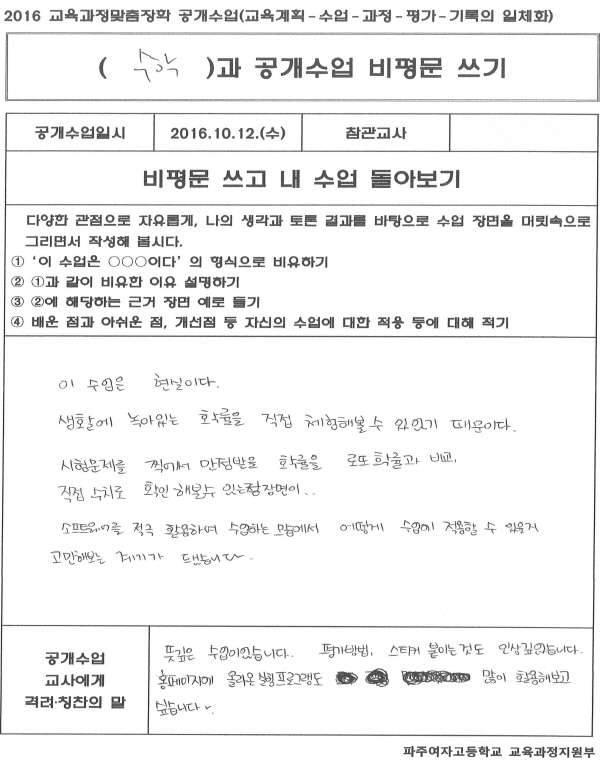 2016 교육과정맞춤장학 공개수업(교육계획-수업-과정-평가-기록의 일체화)
( 수학 )과 공개수업 비평문 쓰기
공개수업일시 2016.10.12.(수) 참관교사
비평문 쓰고 내 수업 돌아보기
다양한 관점으로 자유롭게, 나의 생각과 토론 결과를 바탕으로 수업 장면을 머릿속으로
그리면서 작성해 봅시다.
① '이 수업은 ○○○이다' 의 형식으로 비유하기
② ①과 같이 비유한 이유 설명하기
③ ②에 해당하는 근거 장면 예로 들기
④ 배운 점과 아쉬운 점, 개선점 등 자신의 수업에 대한 적용 등에 대해 적기
이 수업은 현실이다.
생활에 녹아있는 확률을 직접 체험해볼 수 있었기 때문이다.
시험문제를 찍어서 만점받을 확률을 로또 확률과 비교,
직접 수치로 확인해볼수 있는 장면이..
소프트웨어를 적극 활용하며 수업하는 모습에서 어떻게 수업에 적용할 수 있을지
고민해보는 계기가 됐습니다.
공개수업
교사에게
격려·칭찬의 말
뜻깊은 수업이었습니다. 평가방법, 스티커 붙이는것도 인상깊었습니다.
홈페이지에 올라온 실험프로그램도 많이 활용해보고
싶습니다.
파주여자고등학교 교육과정지원부